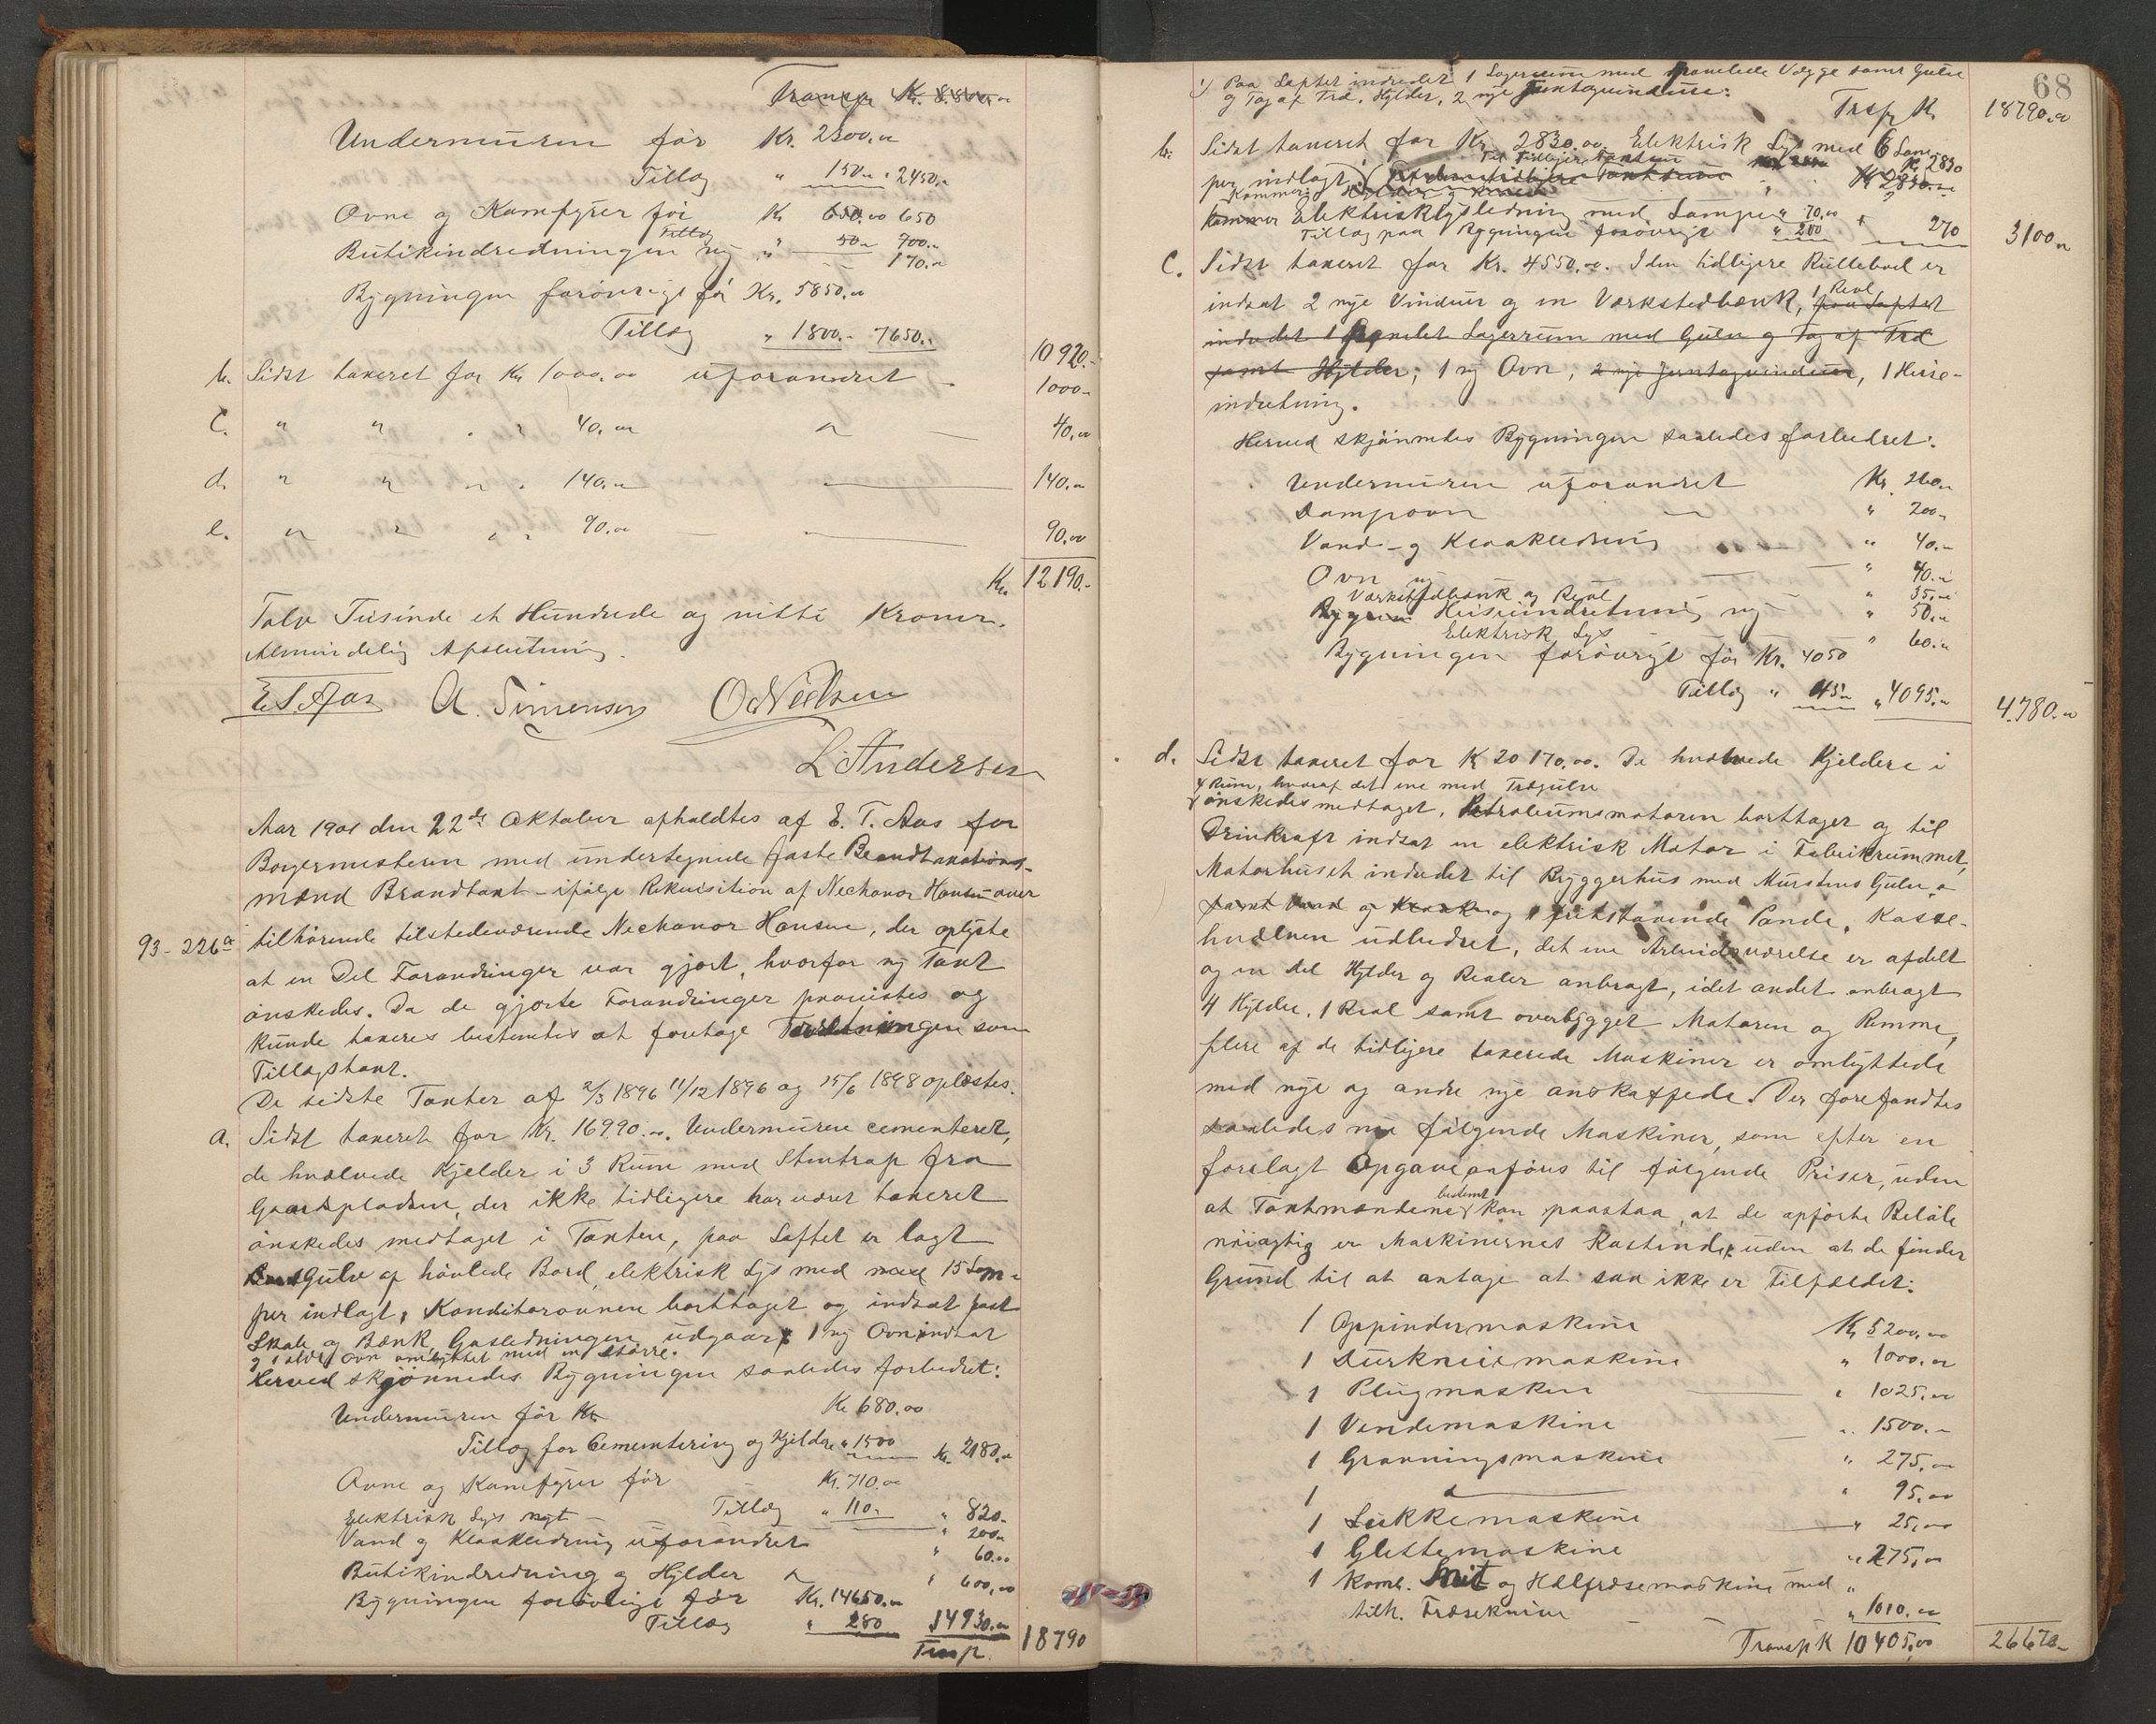 Transp Kr. 8.800.00
Undermuren før Kr. 2300.00
Tillæg " 150.00 " 2450.-
Ovne og Komfyrer før Kr 650.00 650
Tillæg
Butikindredningen ny " 50.- 700.-
170.00
Bygningen forøvrigt før Kr. 5850.00
Tillæg " 1800.- 7650.-
10920.-
b. Sidst taxeret for Kr 1000.00 uforandret - 1000-
c. " " " " 40.00 " — 40.00
d. " " " " 140.00 — 140.00
e. " " " " 90.00 — 90.00
Kr. 12190.-
Tolv Tusinde et Hundrede og nitti Kroner.
Almindelig Afslutning.
E. T. Aas A. Simensen O Nielsen
L. Andersen
Aar 1901 den 22de Oktober afholdtes af E. T. Aas for
Borgermesteren med undertegnede faste Brandtaxations-
mænd Brandtaxt - ifølge Rekvisition af Nechanor Hansen over
93-226a tilhørende tilstedeværende Nechanor Hansen, der oplyste
at en Del Forandringer var gjort, hvorfor ny Taxt
ønskedes. Da de gjorte Forandringer paavistes og
kunde taxeres bestemtes at foretage Forretningen som
Tillægstaxt.
De sidste Taxter af 2/3 1896 11/12 1896 og 15/6 1898 oplæstes.
a. Sidst taxeret for Kr. 16990.00. Undermuren cementeret,
de hvælvede Kjelder i 3 Rum med Stentrap fra
Gaardspladsen, der ikke tidligere har været taxeret
ønskedes medtaget i Taxten, paa Loftet er lagt
Gulv af høvlede Bord, elektrisk Lys med med 15 Lam-
per indlagt, Konditorovnen borttaget og indsat fast
Skab og Bænk, Gasledningen udgaar, 1 ny Ovn indsat
og 1 ældre Ovn ombyttet med en større.
Herved skjønnedes Bygningen saaledes forbedret:
Undermuren før Kr. Kr 680.00
Tillæg for Cementering og Kjeldre " 1500 Kr. 2180.00
Ovne og Komfyrer før Kr. 710.00
Tillæg " 110.- " 820.-
Elektrisk Lys nyt — " 200.-
Vand og Kloakledning uforandret " 60.00
Butikindredning og Hylder " " 600,00
Bygningen forøvrigt før Kr. 14650.00
Tillæg " 280 14930.00
Trsp. 18790
68
1) Paa Loftet indredet 1 Lagerrum med panelede Vægge samt Gulv
og Tag af Træ, Hylder, 2 nye Jerntagvinduer:
Trsp K. 18790.00
b. Sidst taxeret for Kr. 2830.00. Elektrisk Lys med 6 Lam-
per indlagt Til tidligere Taxtsum Kr 2830
Kr 2830.00
Kommer
Kommer Elektrisklysledning med Lamper " 70.00
Tillæg paa Bygningen forøvrigt " 200 + 270 3100.00
c. Sidst taxeret for Kr. 4550.00. I den tidligere Rullebod er
indsat 2 nye Vinduer og en Værkstedbænk, 1 Reol paa Loftet
indredet 1 panelet Lagerrum med Gulv og Tag af Træ
samt Hylder; 1 ny Ovn, 2 nye Jerntagvinduer, 1 Heise-
indretning.
Herved skjønnedes Bygningen saaledes forbedret:
Undermuren uforandret Kr. 260.-
Dampovn " " 200.-
Vand- og Kloakledning " 40.-
Ovn ny — " 40.-
Værkstedbænk og Reol " 35.-
Heiseindretning ny - " 50.-
Elektrisk Lys " 60.-
Bygningen forøvrigt før Kr. 4050
Tillæg " 45.- " 4095.- 4.780.00
d. Sidst taxeret for K 20170.00. De hvælvede Kjeldere i
4 Rum, hvoraf det ene med Trægulv
ønskedes medtaget, Petroleumsmotoren borttaget og til
Drivkraft indsat en elektrisk Motor i Fabrikrummet,
Motorhuset indredet til Bryggerhus med Murstens Gulv
samt Vand og Kloak og 1 fritstaaende Pande, Kasse-
hvælven udbedret, det ene Arbeidsværelse er afdelt
og en del Hylder og Reoler anbragt, i det andet anbragt
4 Hylder, 1 Reol samt overbygget Motoren og Remme,
flere af de tidligere taxerede Maskiner er ombyttede
med nye og andre nye anskaffede. Der forefandtes
saaledes nu følgende Maskiner, som efter en
forelagt Opgave anføres til følgende Priser, uden
at Taxtmændene bestemt kan paastaa, at de opførte Beløb
nøiagtig er Maskinernes Kostende, uden at de finder
Grund til at antage at saa ikke er Tilfældet:
1 Oppindermaskine Kr 5200,00
1 Durkneiemaskine " 1000.00
1 Plugmaskine — " 1025,00
1 Vendemaskine — " 1500.-
1 Gravningsmaskine " 275,00
1 " 95,00
1 Lukkemaskine — " 25,00
1 Glettemaskine " 275,00
1 Komb. Snit og Hælfræsemaskine med "
tilh. Fræsekniver " 1010.00
Transp K 10405,00 26670-